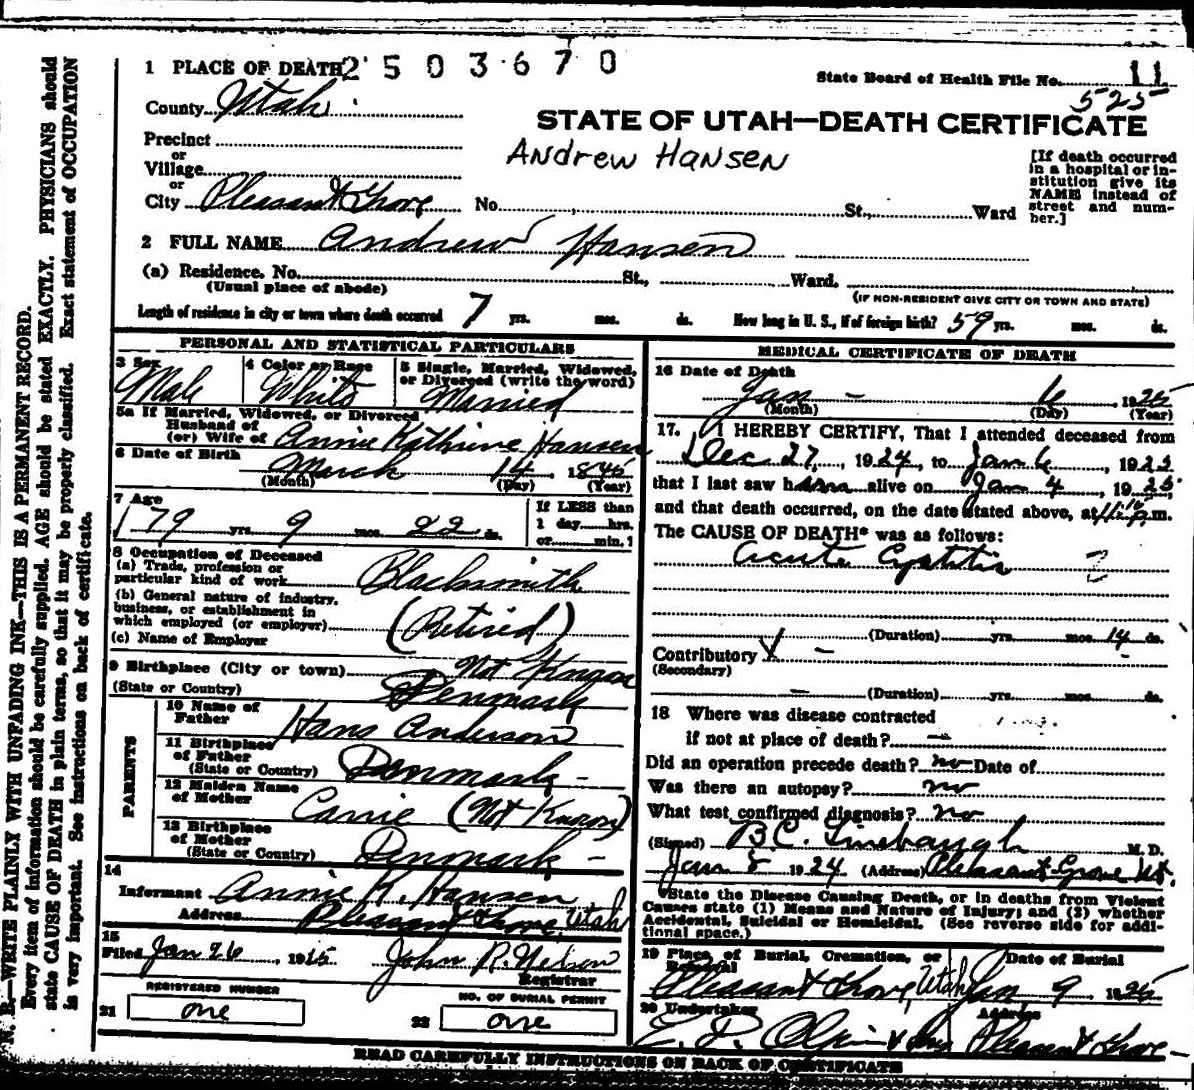 1 PLACE OF DEATH 2503670
State Board of Health File No. 11
525
County Utah
STATE OF UTAH—DEATH CERTIFICATE
Precinct
or
Village
or
City Pleasant Grove No. St., Ward
Andrew Hansen
[If death occurred in a hospital or institution give its NAME instead of street and number.]
2 FULL NAME Andrew Hansen
(a) Residence. No. St., Ward.
(Usual place of abode)
(IF NON-RESIDENT GIVE CITY OR TOWN AND STATE)
Length of residence in city or town where death occurred 7 yrs. mos. ds. How long in U. S., if of foreign birth? 59 yrs. mos. ds.
PERSONAL AND STATISTICAL PARTICULARS
3 Sex Male
4 Color or Race White
5 Single, Married, Widowed, or Divorced (write the word) Married
5a If Married, Widowed, or Divorced
Husband of
(or) Wife of Annie Kathrine Hansen
6 Date of Birth March 14 1845
(Month) (Day) (Year)
7 Age 79 yrs. 9 mos. 22 ds.
If LESS than
1 day hrs.
or min.?
8 Occupation of Deceased
(a) Trade, profession or
particular kind of work Blacksmith
(b) General nature of industry,
business, or establishment in
which employed (or employer) (Retired)
(c) Name of Employer
9 Birthplace (City or town) Not Known
(State or Country) Denmark
PARENTS
10 Name of
Father Hans Anderson
11 Birthplace
of Father
(State or Country) Denmark -
12 Maiden Name
of Mother Carrie (Not Known)
13 Birthplace
of Mother
(State or Country) Denmark -
14
Informant Annie K. Hansen
Address Pleasant Grove, Utah
15
Filed Jan 26, 1925 John R. Nelson
Registrar
REGISTERED NUMBER
21 one
NO. OF BURIAL PERMIT
22 one
MEDICAL CERTIFICATE OF DEATH
16 Date of Death
Jan - 6, 1925
(Month) (Day) (Year)
17. I HEREBY CERTIFY, That I attended deceased from
Dec 27, 1924, to Jan 6, 1925
that I last saw him alive on Jan 4, 1925,
and that death occurred, on the date stated above, at p.m.
The CAUSE OF DEATH* was as follows:
Acute Cystitis
(Duration) yrs. mos. 14 ds.
Contributory -
(Secondary)
- (Duration) yrs. mos. ds.
18 Where was disease contracted
if not at place of death? -
Did an operation precede death? no Date of
Was there an autopsy? no
What test confirmed diagnosis? no
(Signed) B.C. Linebaugh M. D.
Jan 8 1924 (Address) Pleasant Grove Ut.
*State the Disease Causing Death, or in deaths from Violent
Causes state (1) Means and Nature of Injury; and (2) whether
Accidental, Suicidal or Homicidal. (See reverse side for additional space.)
19 Place of Burial, Cremation, or Removal Date of Burial
Pleasant Grove, Utah Jan 9 1925
20 Undertaker Address
Olpin & Pleasant Grove -
READ CAREFULLY INSTRUCTIONS ON BACK OF CERTIFICATE
N. B.—WRITE PLAINLY WITH UNFADING INK—THIS IS A PERMANENT RECORD.
Every item of information should be carefully supplied. AGE should be stated EXACTLY. PHYSICIANS should
state CAUSE OF DEATH in plain terms, so that it may be properly classified. Exact statement of OCCUPATION
is very important. See instructions on back of certificate.